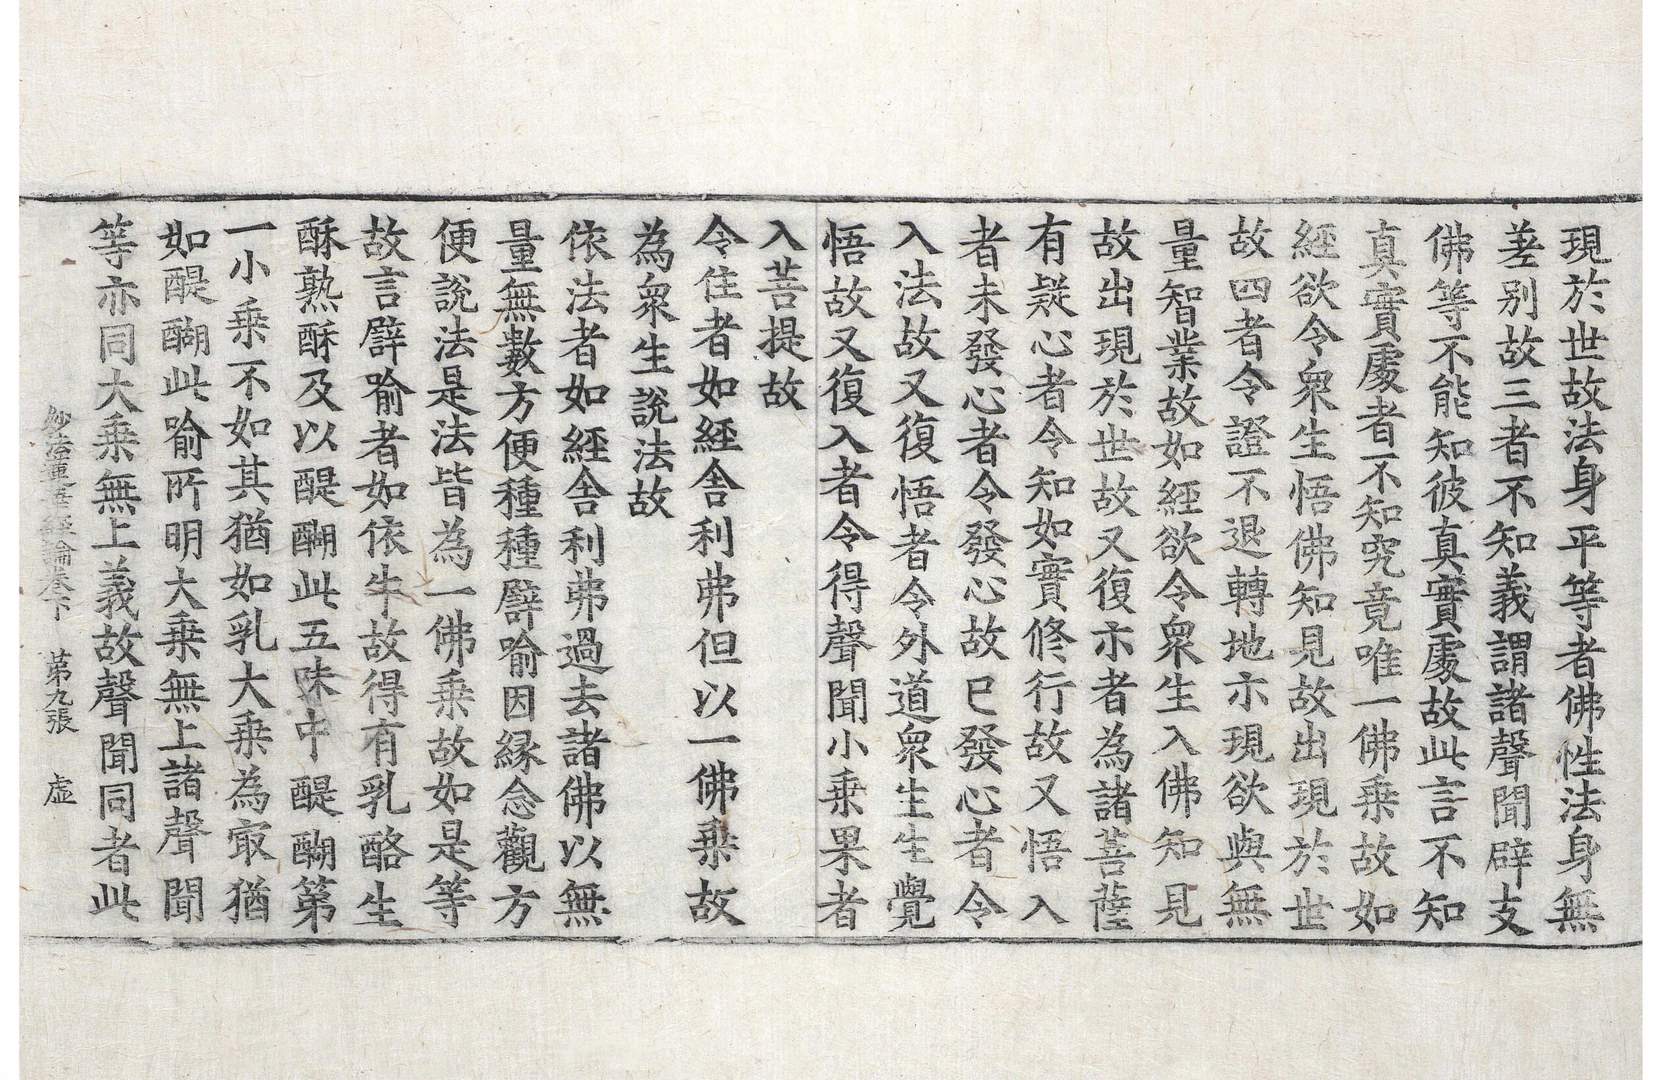 現於世故法身平等者佛性法身無
差别故三者不知義謂諸聲聞辟支
佛等不能知彼真實處故此言不知
真實處者不知究竟唯一佛乗故如
經欲令衆生悟佛知見故出現於世
故四者令證不退轉地示現欲與無
量智業故如經欲令衆生入佛知見
故出現於世故又復示者為諸菩薩
有疑心者令知如實修行故又悟入
者未發心者令發心故已發心者令
入法故又復悟者令外道衆生生覺
悟故又復入者令得聲聞小乗果者
入菩提故
令住者如經舍利弗但以一佛乗故
為衆生說法故
依法者如經舍利弗過去諸佛以無
量無數方便種種譬喻因縁念觀方
便說法是法皆為一佛乗故如是等
故言譬喻者如依牛故得有乳酪生
酥熟酥及以醍醐此五味中醍醐第
一小乗不如其猶如乳大乗為㝡猶
如醍醐此喻所明大乗無上諸聲聞
等亦同大乗無上義故聲聞同者此
妙法蓮華經論卷下 第九張 虛